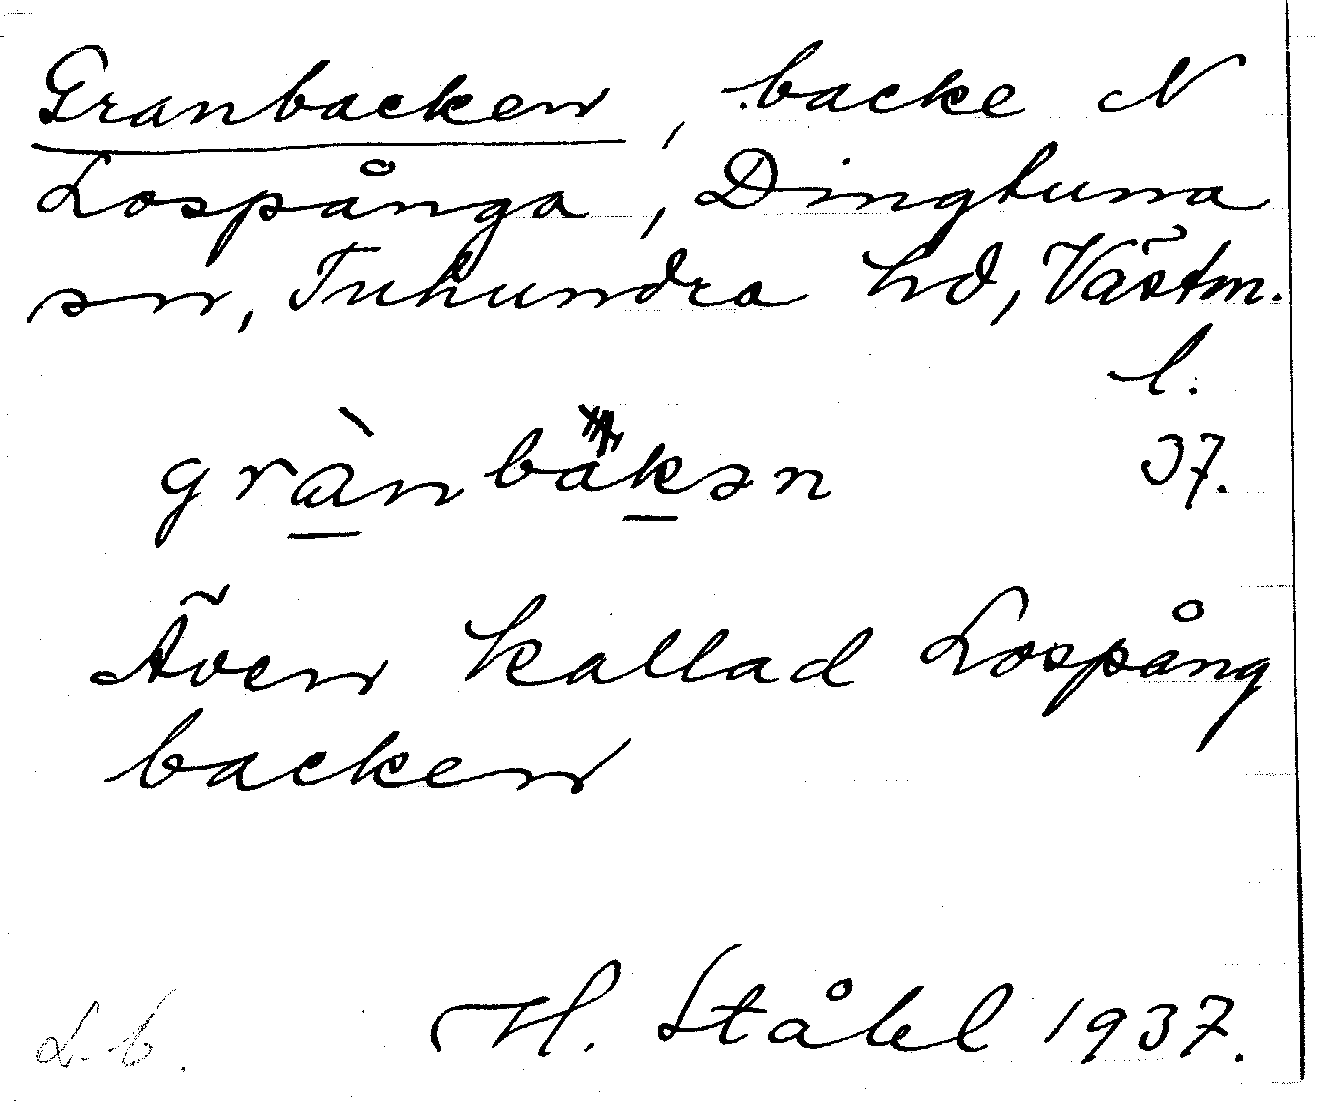 Granbacken, backe N
Lospånga, Dingtuna
sn, Tuhundra hd, Västm.
l.
grànbäkən 37.
Även kallad Lospång
backen
H. Ståhl 1937.
L-b.